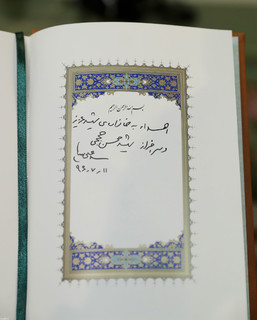 بسم الله الرحمن الرحیم
اهداء به خانواده‌ی شهید عزیز
و سرافراز شهید محسن حججی
۹۶٫۷٫۱۱